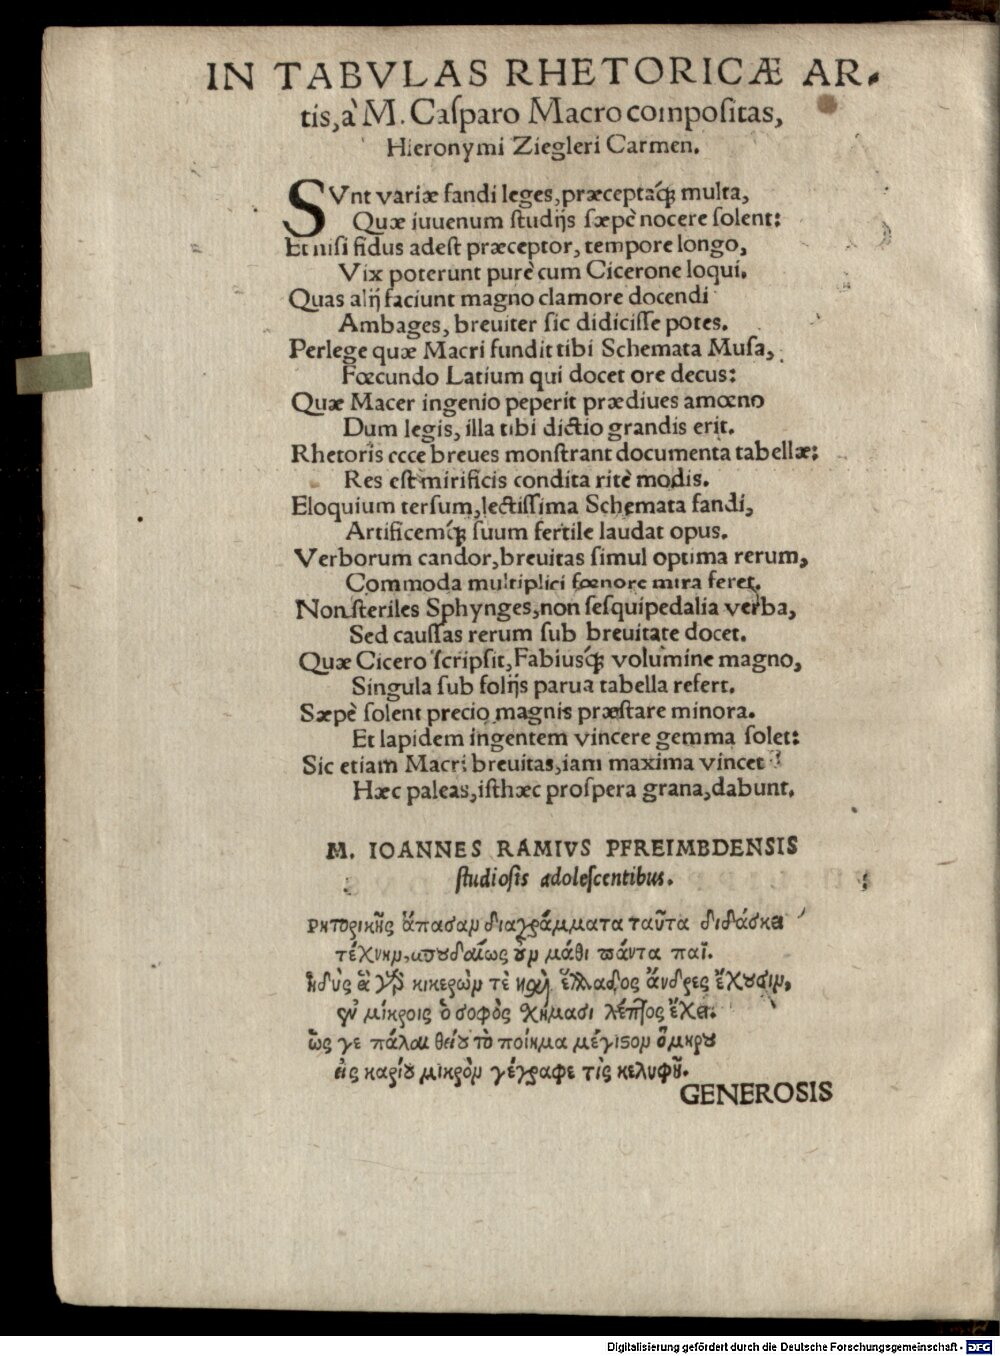 IN TABVLAS RHETORICÆ AR-
tis, à M. Caſparo Macro compoſitas,
Hieronymi Ziegleri Carmen.
SVnt variæ fandi leges, præceptáq́ꝫ multa,
Quæ iuuenum ſtudijs ſæpè nocere ſolent:
Et niſi fidus adeſt præceptor, tempore longo,
Vix poterunt purè cum Cicerone loqui.
Quas alij faciunt magno clamore docendi
Ambages, breuiter ſic didiciſſe potes.
Perlege quæ Macri fundit tibi Schemata Muſa,
Fœcundo Latium qui docet ore decus:
Quæ Macer ingenio peperit prædiues amœno
Dum legis, illa tibi dictio grandis erit.
Rhetoris ecce breues monſtrant documenta tabellæ:
Res eſt mirificis condita ritè modis.
Eloquium terſum, lectiſſima Schemata fandi,
Artificemq́ꝫ ſuum fertile laudat opus.
Verborum candor, breuitas ſimul optima rerum,
Commoda multiplici fœnore mira feret.
Non ſteriles Sphynges, non ſeſquipedalia verba,
Sed cauſſas rerum ſub breuitate docet.
Quæ Cicero ſcripſit, Fabiusq́ꝫ volumine magno,
Singula ſub folijs parua tabella refert.
Sæpè ſolent precio magnis præſtare minora.
Et lapidem ingentem vincere gemma ſolet:
Sic etiam Macri breuitas, iam maxima vincet
Hæc paleas, iſthæc proſpera grana, dabunt.
M. IOANNES RAMIVS PFREIMBDENSIS
ſtudioſis adoleſcentibus.
Ρητορικῆς ἅπασαν διαγράμματα ταῦτα διδάσκει
τέχνην, σπουδαίως οὖν μάθι πάντα παῖ.
ἡδὺς ἃ γὰρ κικερὼν τὲ καὶ ἑλλάδος ἄνδρες ἔχουσιν,
ἐν μίκροις ὁ σοφὸς χήμασι λέπτος ἔχει.
ὥς γε πάλαι θείου τὸ ποίημα μέγιστον ὁμήρου
εἰς καρίου μικρὸν γέγραφε τὶς κελυφοῦ.
GENEROSIS
Digitalisierung gefördert durch die Deutsche Forschungsgemeinschaft - DFG